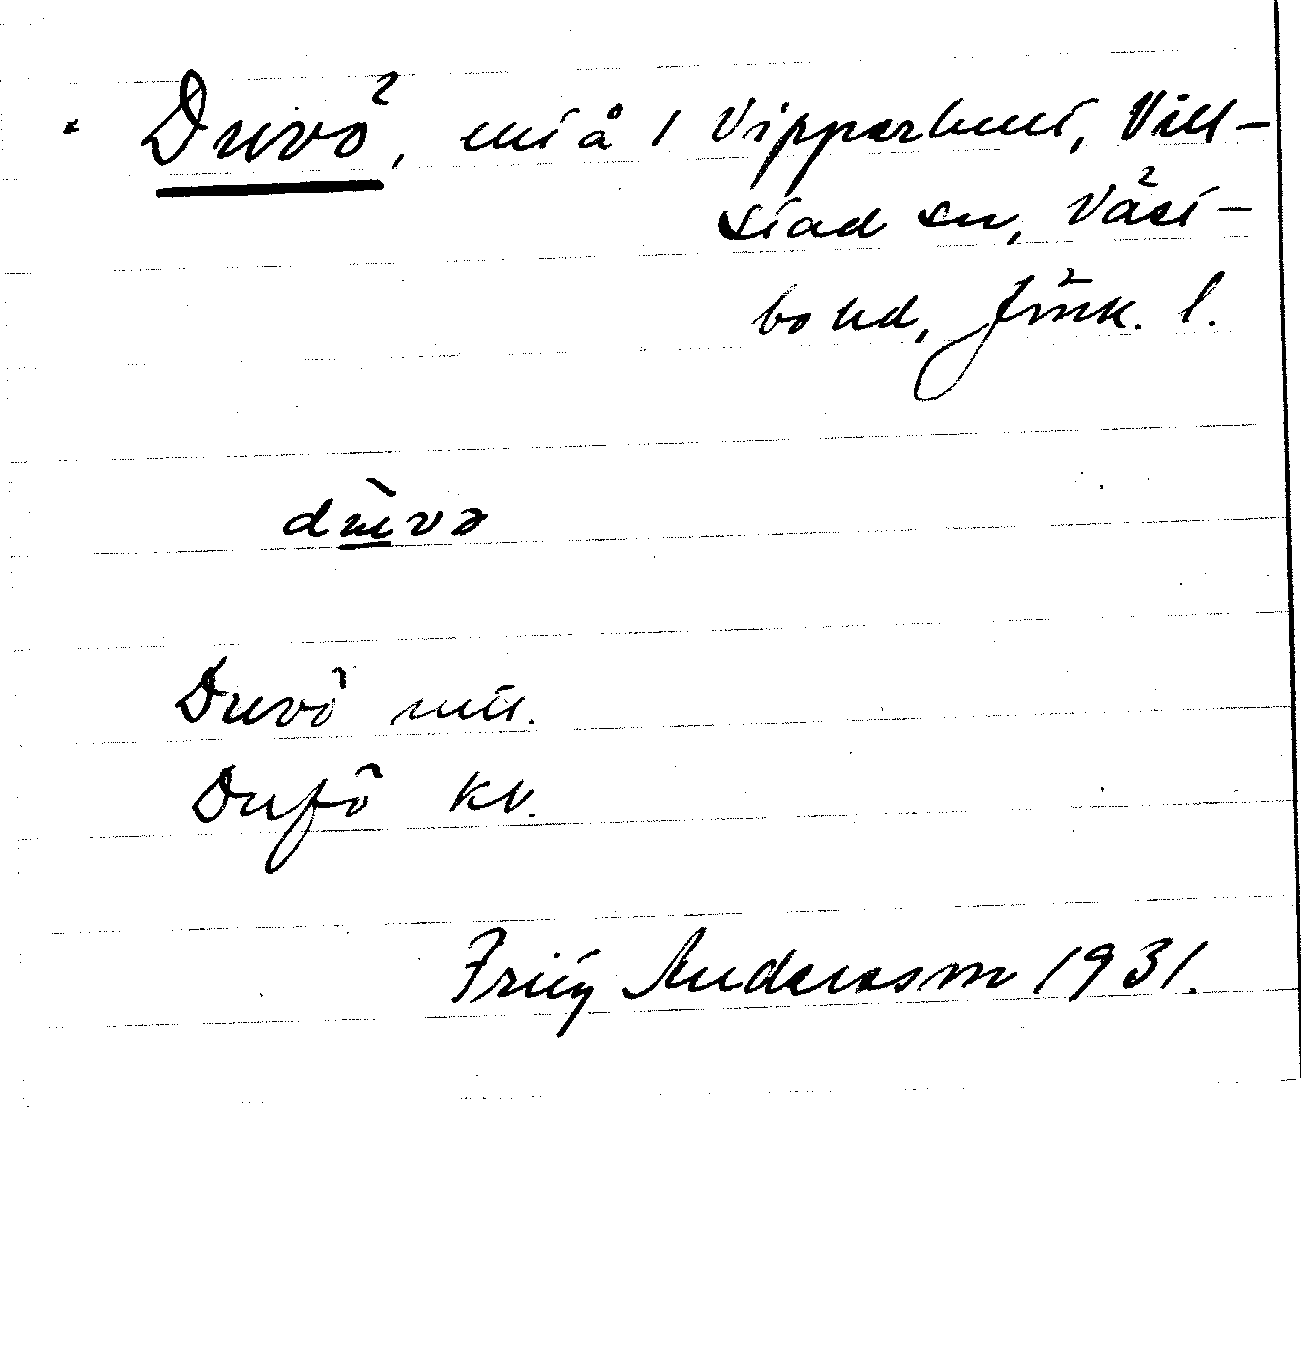 Duvö, utj å i Vipparhult, Vill-
stad sn, Väst-
bo hd, Jönk. l.
duvə
Duvö mtl.
Dufö kv.
Fritz Andersson 1931.